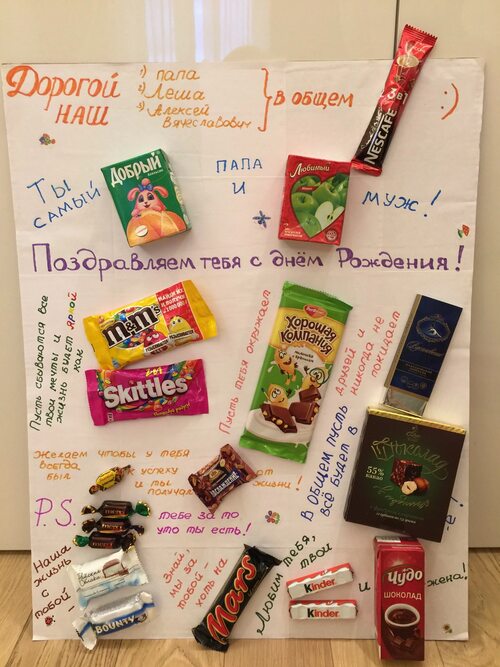 Дорогой
наш
1) папа
2) Леша
3) Алексей
Вячеславович
В общем
:)
NESCAFÉ
3 в 1
Ты
самый
Добрый
папа
и
Любимый
муж!
Поздравляем тебя с днём Рождения!
Пусть сбываются все
твои мечты и
жизнь будет яркой
как
m&m's
Skittles
Пусть тебя окружает
Хорошая
компания
друзей и
никогда не
покидает
Вдохновение
Желаем чтобы у тебя
всегда
был
к успеху
и ты
получал
от
жизни!
В общем пусть
всё будет в
Шоколад
55%
какао
е!
P.S.
тебе за то
что ты есть!
Наша
жизнь
с
тобой -
BOUNTY
Знай,
мы за
тобой -
хоть на
Mars
Любим тебя,
твои
Kinder
Kinder
и
Чудо
ШОКОЛАД
жена!